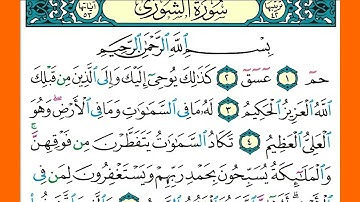 سُورَةُ الشُّورَىٰ
بِسْمِ اللَّهِ الرَّحْمَٰنِ الرَّحِيمِ
حمٓ ١ عٓسٓقٓ ٢ كَذَٰلِكَ يُوحِىٓ إِلَيْكَ وَإِلَى ٱلَّذِينَ مِن قَبْلِكَ
ٱللَّهُ ٱلْعَزِيزُ ٱلْحَكِيمُ ٣ لَهُۥ مَا فِى ٱلسَّمَٰوَٰتِ وَمَا فِى ٱلْأَرْضِ ۖ وَهُوَ
ٱلْعَلِىُّ ٱلْعَظِيمُ ٤ تَكَادُ ٱلسَّمَٰوَٰتُ يَتَفَطَّرْنَ مِن فَوْقِهِنَّ ۚ
وَٱلْمَلَٰٓئِكَةُ يُسَبِّحُونَ بِحَمْدِ رَبِّهِمْ وَيَسْتَغْفِرُونَ لِمَن فِى